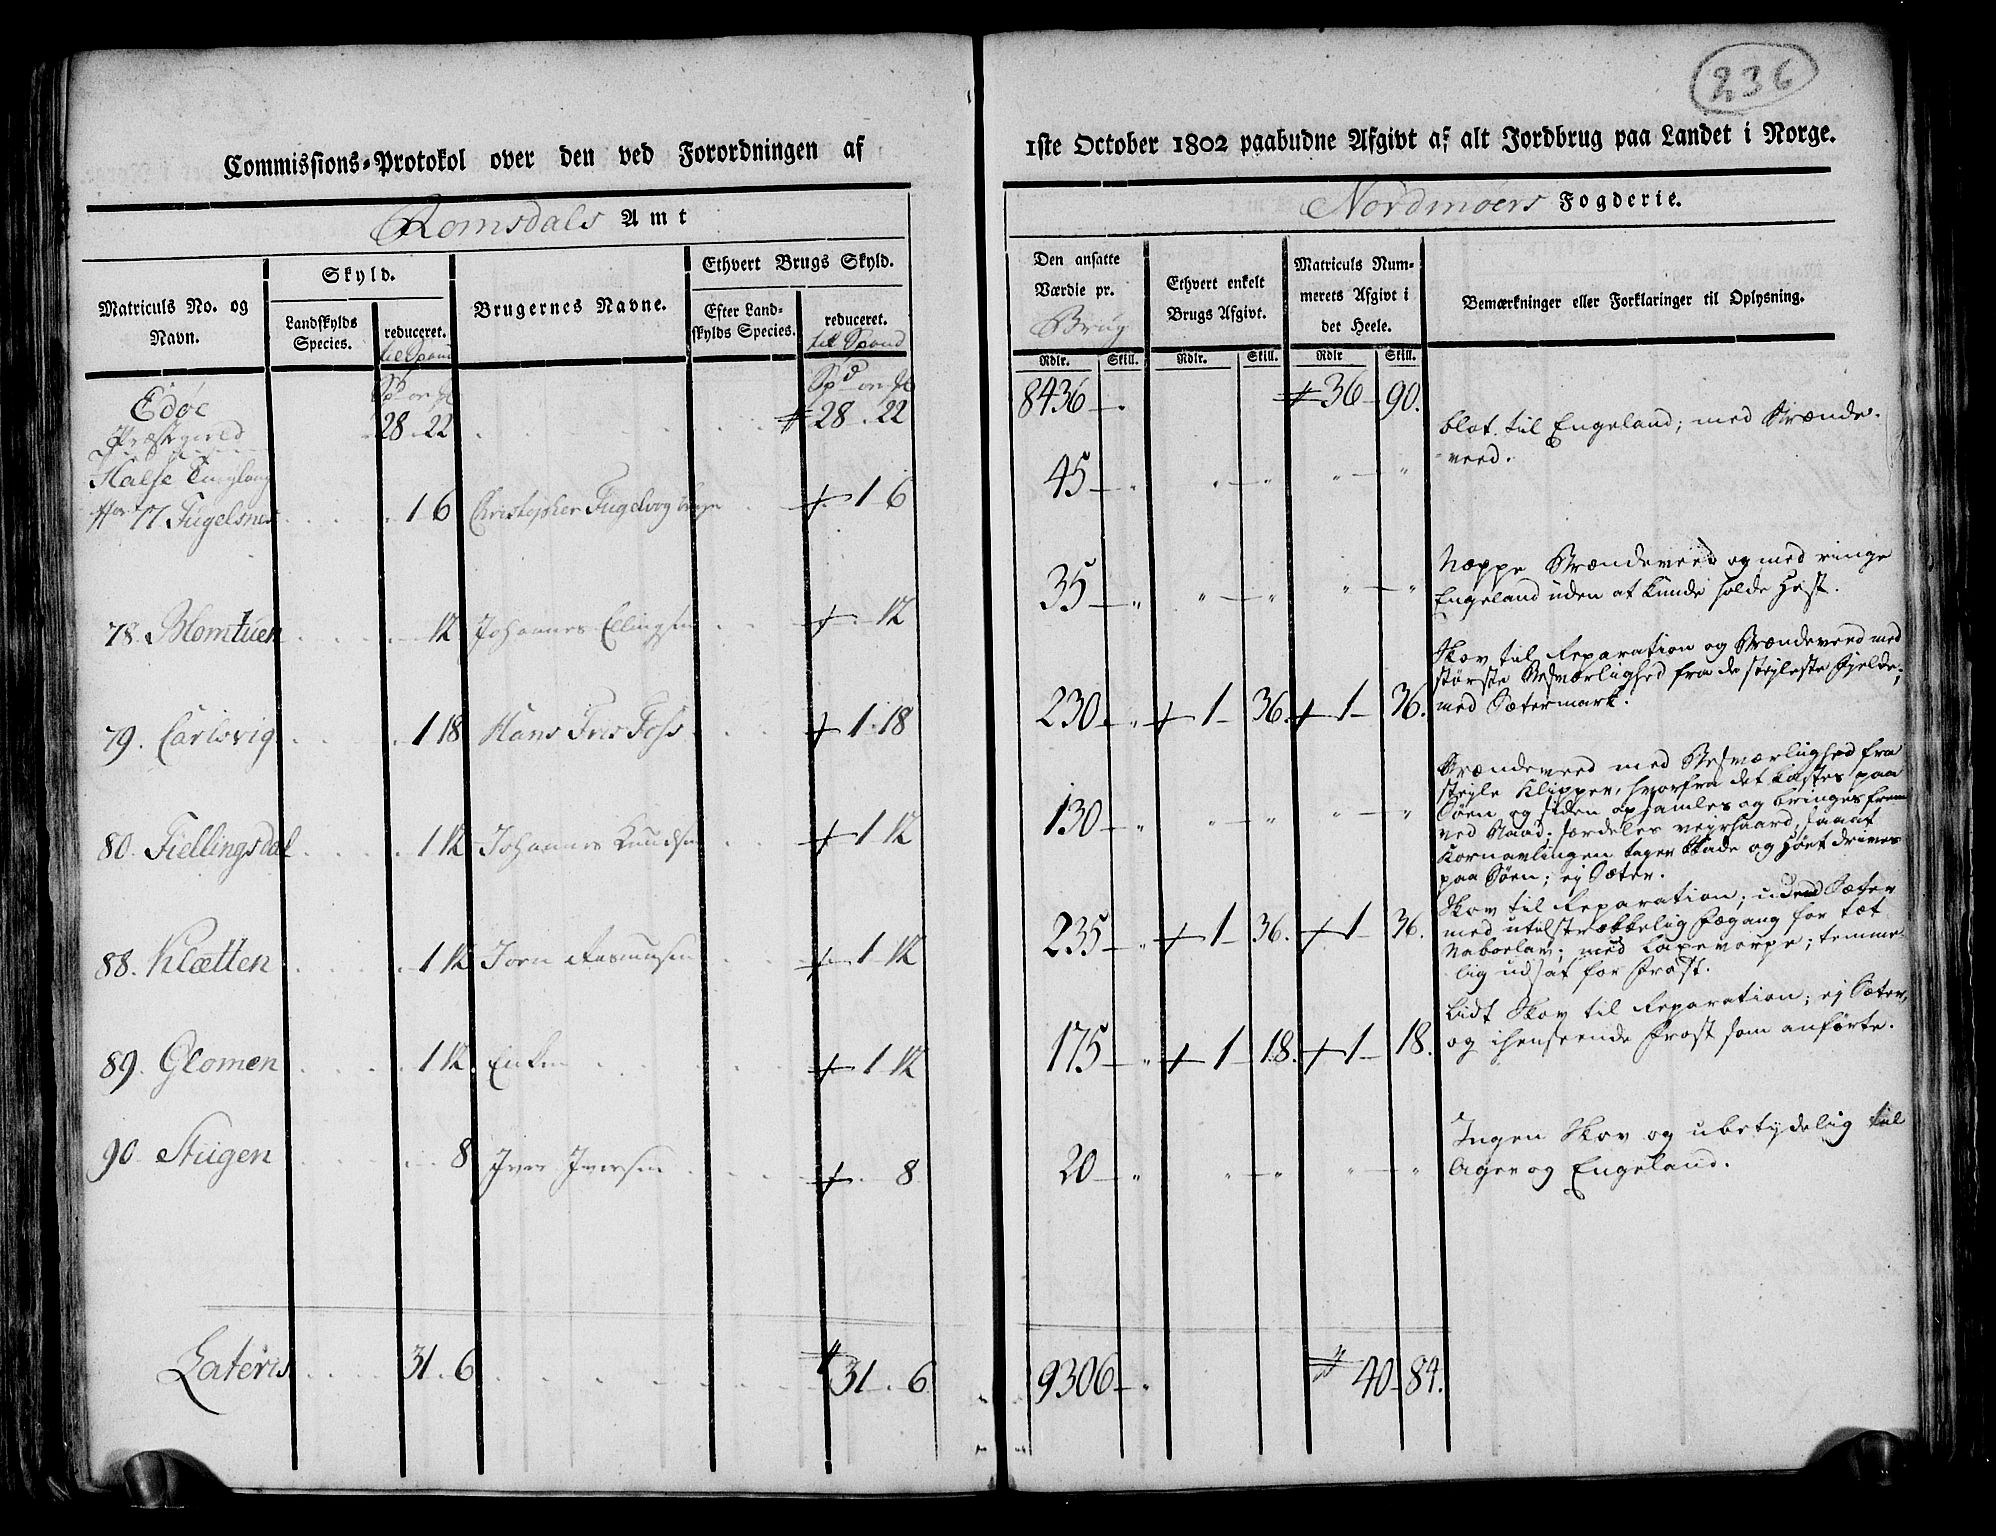 236
Commissions-Protokol over den ved Forordningen af
1ste October 1802 paabudne Afgivt af alt Jordbrug paa Landet i Norge.
Romsdals Amt
Nordmøers Fogderie.
Matriculs No. og Navn.
Skyld.
Landskylds Species.
reduceret.
til Spand
Brugernes Navne.
Ethvert Brugs Skyld.
Efter Landskylds Species.
reduceret.
til Spand
Den ansatte Værdie pr.
Brug
Ethvert enkelt Brugs Afgivt.
Matriculs Nummerets Afgivt i det Heele.
Bemærkninger eller Forklaringer til Oplysning.
Rdlr. Skill. Rdlr. Skill. Rdlr Skill.
Edøe
Præstegield 28 . 22 28 . 22 8436 36 90.
Halse Tinglaug
77 Fugelsnes 1 6 Christopher Fugelvog 1 6 45
blot til Engeland; med Brænde-
veed.
78. Blomtuen 12 Johannes Ellingsen 12 35
Neppe Brændeveed og med ringe
Engeland uden at kunde holde Hest.
79. Carlsvig 1 18 Hans 1 18 230 1 36. 1 36.
Skov til Reparation og Brændeveed med
største Besværlighed fra de steyleste Fjelde;
med Sætermark.
80. Fiellingsdal 1 12 Johannes Knudsen 1 12 130
Brændeveed med Besværlighed fra
steyle Klipper, hvorfra det kastes paa
Søen og siden opsamles og bringes frem
ved Baad. særdeles veirhaard, saaat
Kornavlingen tager Skade og Høet drives
paa Søen; ej Sæter.
88. Klætten 1 12 Jørn Rasmusen 1 12 235 1 36. 1 36.
Skov til Reparation; uden Sæter
med utilstrækkelig Fægang for tæt
Naboelav; med Laxevarpe; temme-
lig udsat for Frost.
89. Glomen 1 12. Enken 1 12 175 1 18. 1 18.
Lidt Skov til Reparation; ej Sæter,
og ihenseende Frost som anførte.
90 Stugen 8 Iver Iversen 8 20
Ingen Skov og ubetydelig til
Ager og Engeland.
Lateris 31 . 6 31 . 6 9306 40 84.